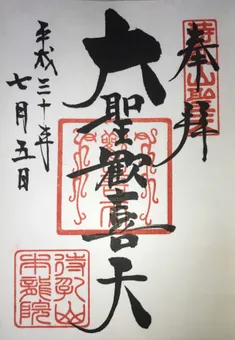 奉拝
待乳山聖天
大聖歡喜天
平成三十年
七月五日
待乳山
本龍院